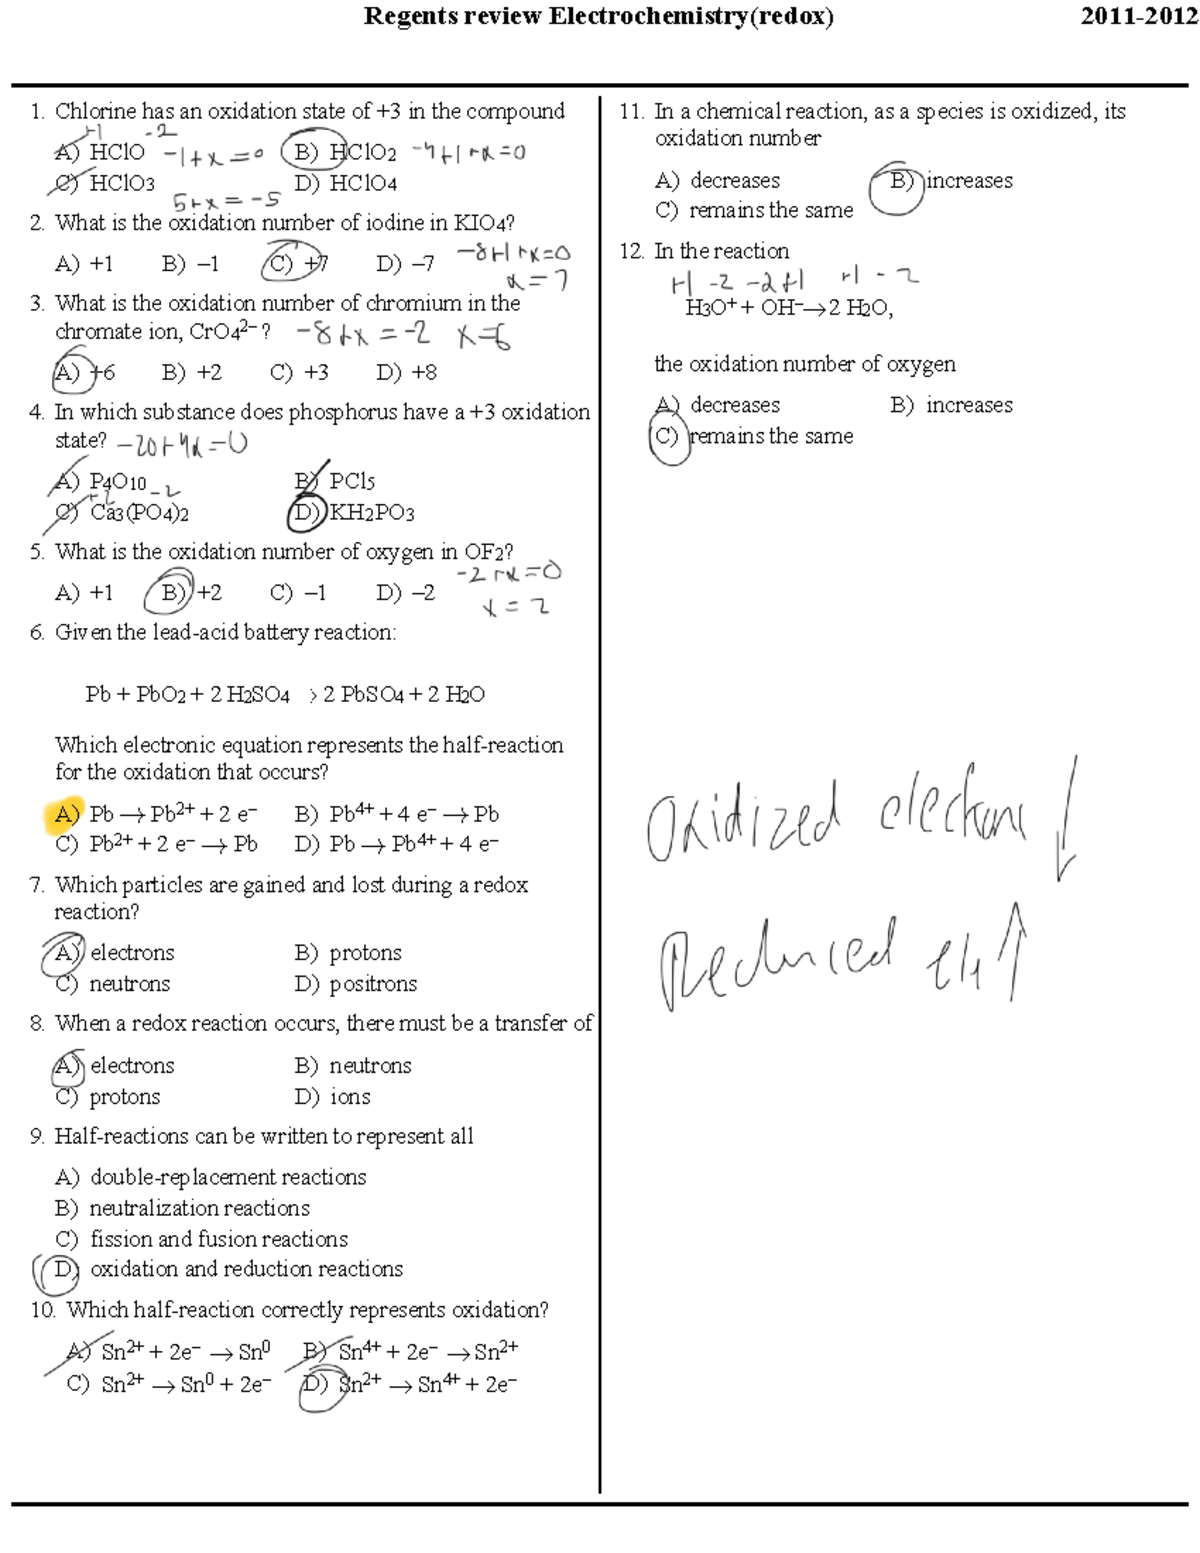 Regents review Electrochemistry(redox) 2011-2012
1. Chlorine has an oxidation state of +3 in the compound
+1 -2
A) HClO -1+x=0 B) HClO2 -4+1+x=0
C) HClO3 D) HClO4
5+x=-5
2. What is the oxidation number of iodine in KIO4?
A) +1 B) –1 C) +7 D) –7 -8+1+x=0
x=7
3. What is the oxidation number of chromium in the
chromate ion, CrO4²⁻? -8+x=-2 x=6
A) +6 B) +2 C) +3 D) +8
4. In which substance does phosphorus have a +3 oxidation
state? -20+4x=0
A) P4O10 B) PCl5
+2 -2
C) Ca3(PO4)2 D) KH2PO3
5. What is the oxidation number of oxygen in OF2?
-2+x=0
A) +1 B) +2 C) –1 D) –2
x=2
6. Given the lead-acid battery reaction:
Pb + PbO2 + 2 H2SO4 → 2 PbSO4 + 2 H2O
Which electronic equation represents the half-reaction
for the oxidation that occurs?
A) Pb → Pb²⁺ + 2 e⁻ B) Pb⁴⁺ + 4 e⁻ → Pb
C) Pb²⁺ + 2 e⁻ → Pb D) Pb → Pb⁴⁺ + 4 e⁻
7. Which particles are gained and lost during a redox
reaction?
A) electrons B) protons
C) neutrons D) positrons
8. When a redox reaction occurs, there must be a transfer of
A) electrons B) neutrons
C) protons D) ions
9. Half-reactions can be written to represent all
A) double-replacement reactions
B) neutralization reactions
C) fission and fusion reactions
D) oxidation and reduction reactions
10. Which half-reaction correctly represents oxidation?
A) Sn²⁺ + 2e⁻ → Sn⁰ B) Sn⁴⁺ + 2e⁻ → Sn²⁺
C) Sn²⁺ → Sn⁰ + 2e⁻ D) Sn²⁺ → Sn⁴⁺ + 2e⁻
11. In a chemical reaction, as a species is oxidized, its
oxidation number
A) decreases B) increases
C) remains the same
12. In the reaction
+1 -2 -2+1 +1 -2
H3O⁺ + OH⁻→2 H2O,
the oxidation number of oxygen
A) decreases B) increases
C) remains the same
Oxidized electrons ↓
Reduced ↑